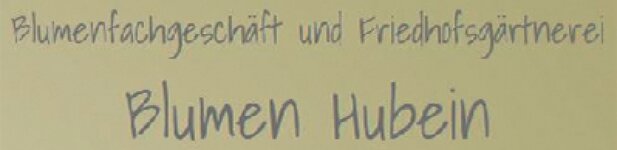 Blumenfachgeschäft und Friedhofsgärtnerei
Blumen Hubein